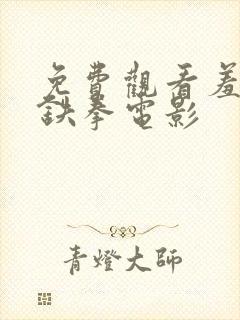 免費觀看羞
鉄拳電影
青燈大師